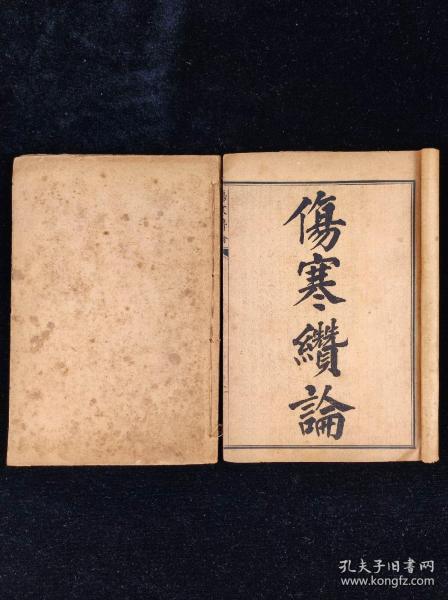 傷寒纘論
孔夫子旧书网
www.kongfz.com